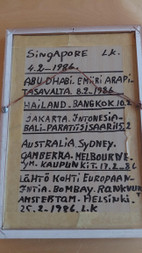 SINGAPORE LK.
4.2-1986.
ABU DHABI. EMIIRI ARAPI-
TASAVALTA. 8.2-1986.
HAILAND. BANGKOK 10.2
JAKARTA. INTONESIA-
BALI. PARATIISISAARI 12.2
AUSTRALIA. SYDNEY.
CAMBERRA. MELBOURNE-
YM. KAUPUNKIT. 17.2-86
LÄHTÖ KOHTI EUROPAAN-
INTIA. BOMBAY.
AMSTERTAM. HELSINKI.
25.2-1986. L.K